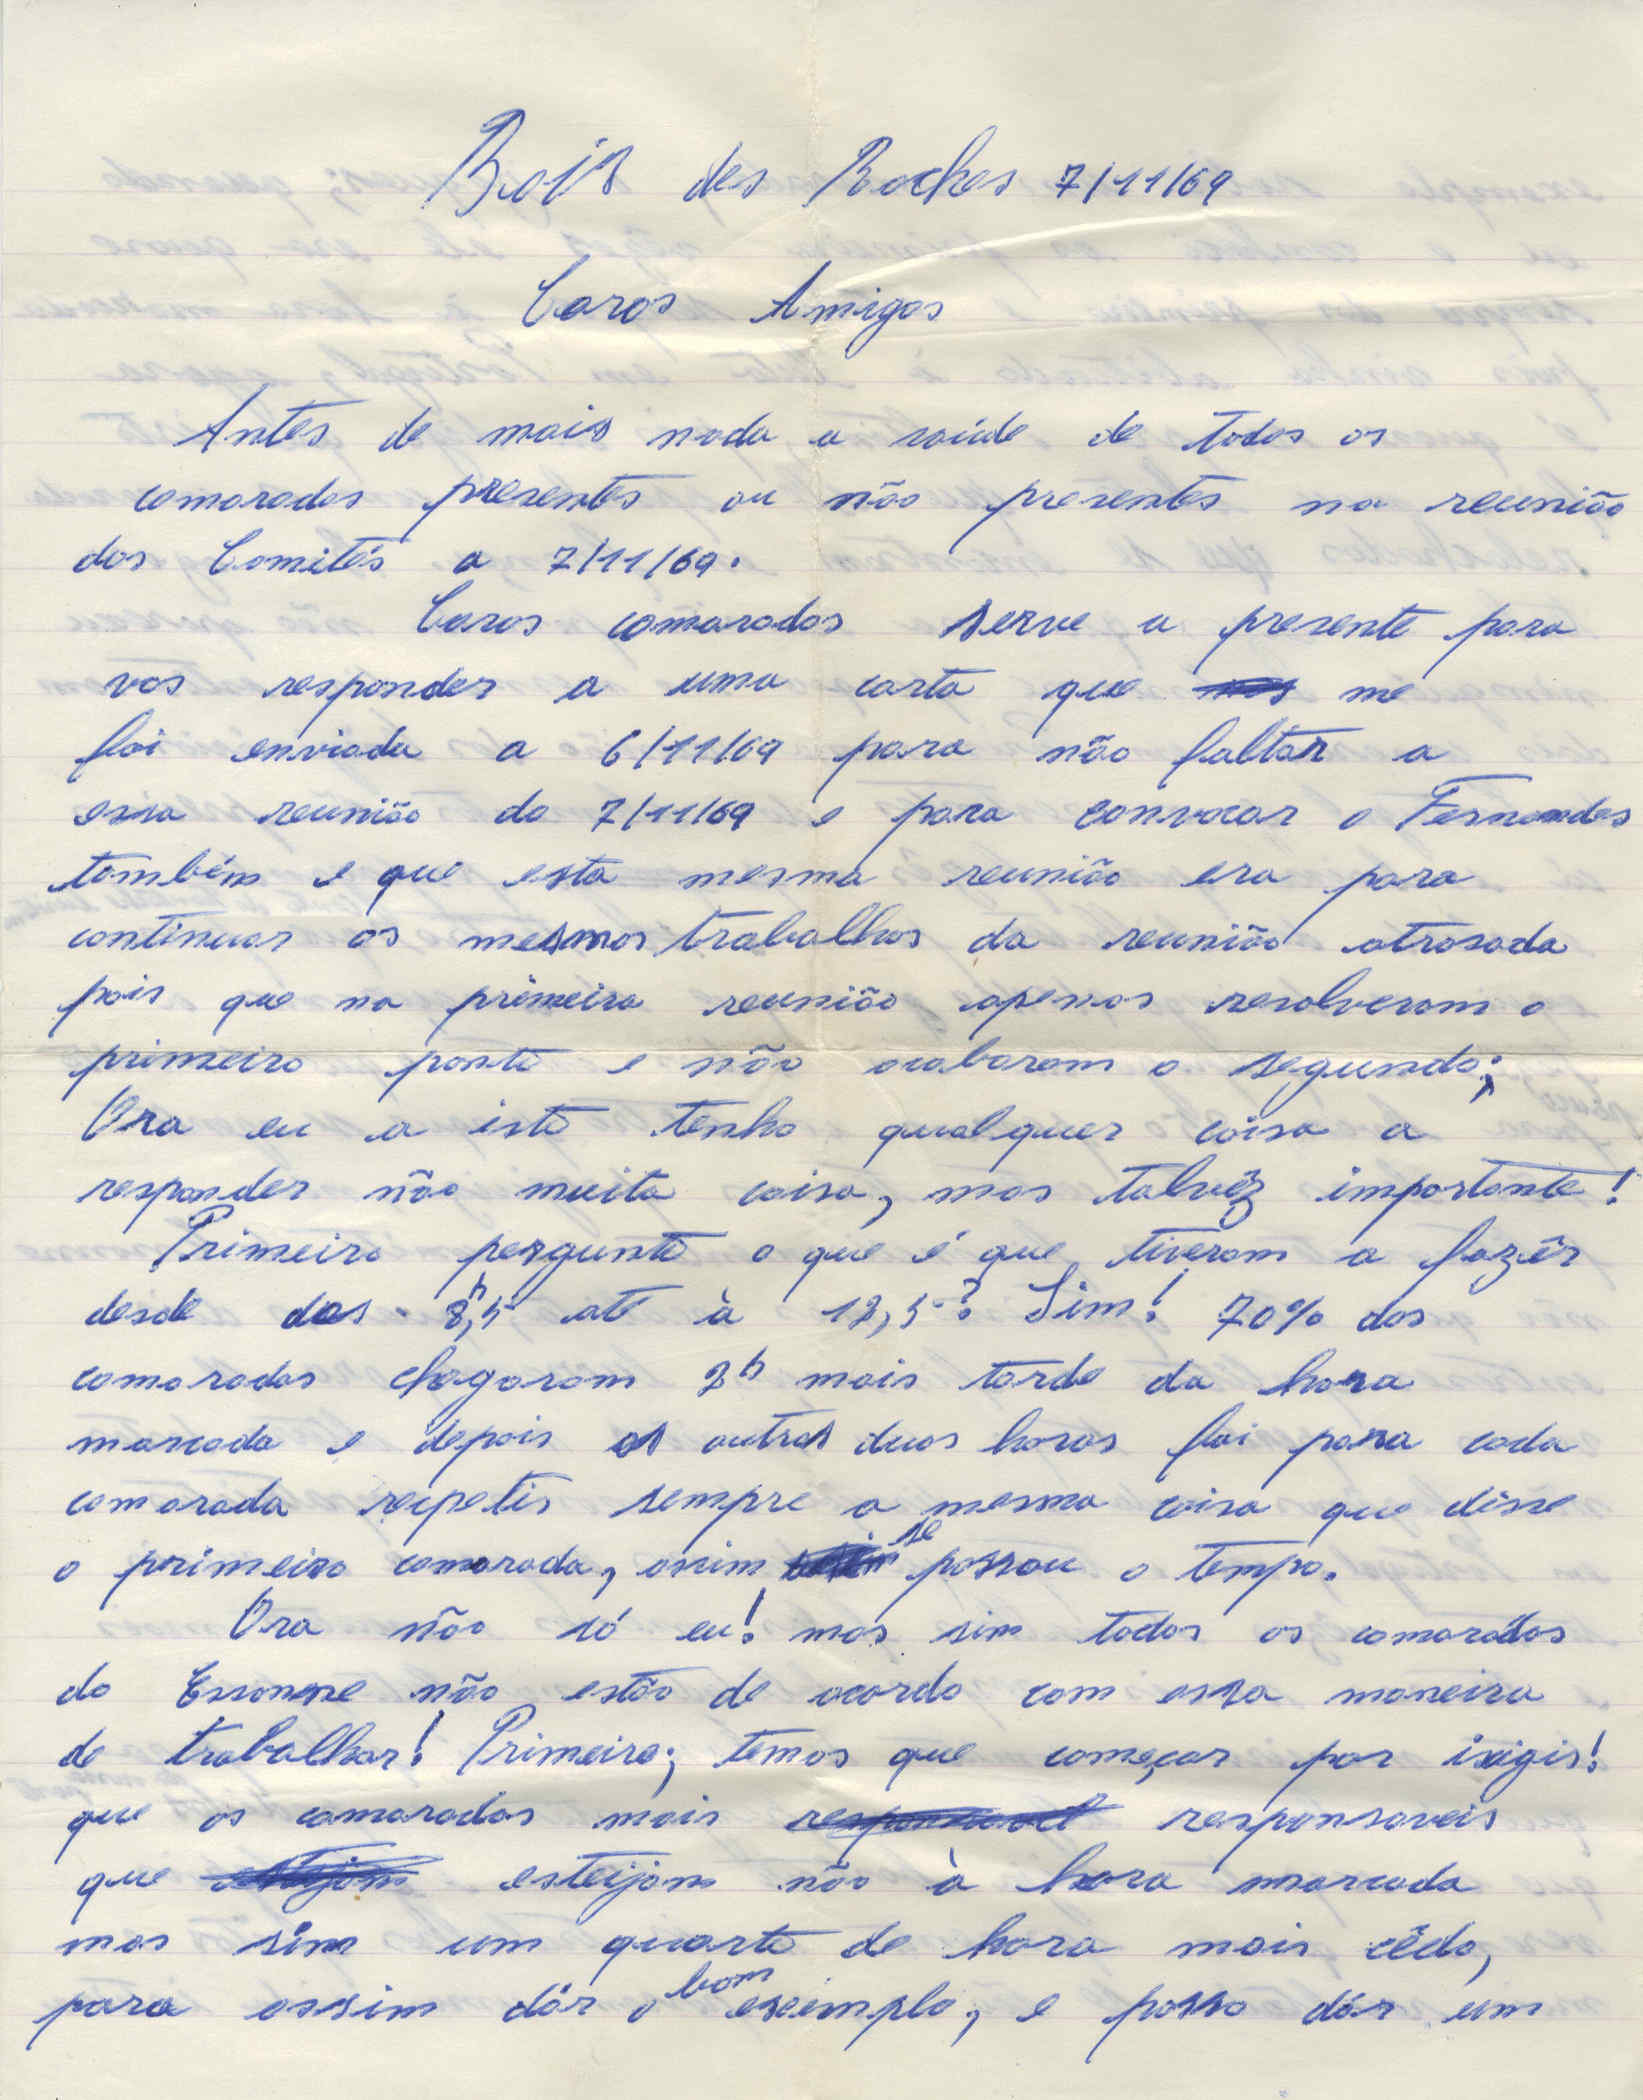 Bois des Roches 7/11/69
Caros Amigos
Antes de mais nada a saúde de todos os
camaradas presentes ou não presentes na reunião
dos Comités a 7/11/69.
Caros camaradas serve a presente para
vos responder a uma carta que me
foi enviada a 6/11/69 para não faltar a
essa reunião do 7/11/69 e para convocar o Fernandes
também e que esta mesma reunião era para
continuar os mesmos trabalhos da reunião atrasada
pois que na primeira reunião apenas resolveram o
primeiro ponto e não acabaram o segundo;
Ora eu a isto tenho qualquer coisa a
responder não muita coisa, mas talvêz importante!
Primeiro pergunto o que é que tiveram a fazêr
desde das 8,5h até à 12,5? Sim! 70% dos
camaradas chegaram 2h mais tarde da hora
marcada e depois as outras duas horas foi para cada
camarada recpetir sempre a mesma coisa que disse
o primeiro camarada, assim se passou o tempo.
Ora não só eu! mas sim todos os camarádas
do Essonne não estão de acordo com essa maneira
de trabalhar! Primeiro; temos que começar por isigir!
que os camaradas mais responsaveis
que esteijam não à hora marcada
mas sim um quarto de hora mais cêdo,
para assim dár o bom eseimplo, e posso dár um